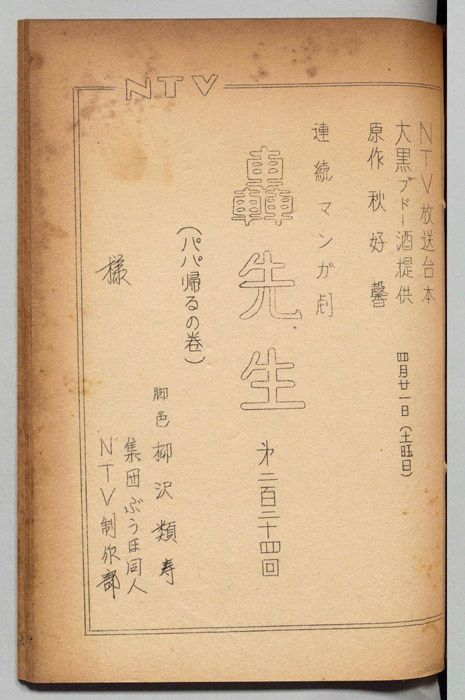 NTV
NTV放送台本
大黒ブドー酒提供 四月廿一日(土旺日)
原作 秋好馨
連続マンガ劇
轟先生 第二百二十四回
(パパ帰るの巻)
脚色 柳沢類寿
集団ぶうほ同人
NTV制作部
様